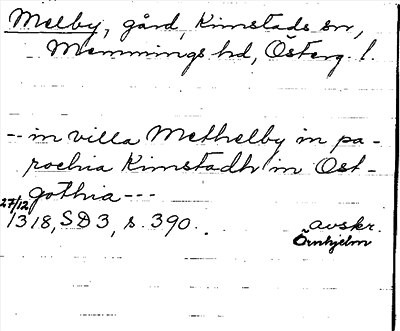 Melby, gård, Kimstads sn,
Memmings hd, Österg. l.
-- in villa Methelby in pa-
rochia Kimstadh in Ost-
gothia ---
27/12
1318, SD 3, s. 390. avskr.
Örnhjelm